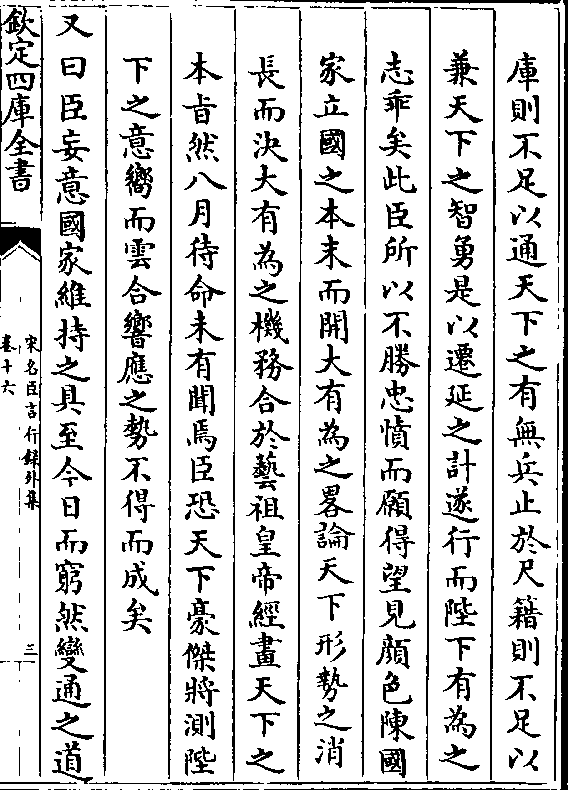 庫則不足以通天下之有無兵止於尺籍則不足以
兼天下之智勇是以遷延之計遂行而陛下有為之
志乖矣此臣所以不勝忠憤而願得望見顔色陳國
家立國之本末而開大有為之畧論天下形勢之消
長而決大有為之機務合於藝祖皇帝經畫天下之
本旨然八月待命未有聞焉臣恐天下豪傑將測陛
下之意嚮而雲合響應之勢不得而成矣
又曰臣妄意國家維持之具至今日而窮然變通之道
欽定四庫全書
宋名臣言行録外集
卷十六
三